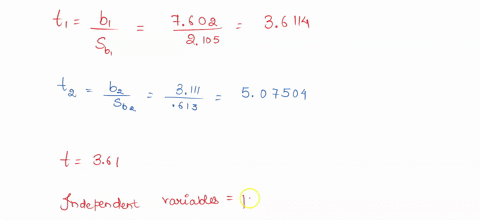 t₁ = b₁ / S_b₁ = 7.602 / 2.105 = 3.6114
t₂ = b₂ / S_b₂ = 3.111 / .613 = 5.07504
t = 3.61
Independent variables = 1